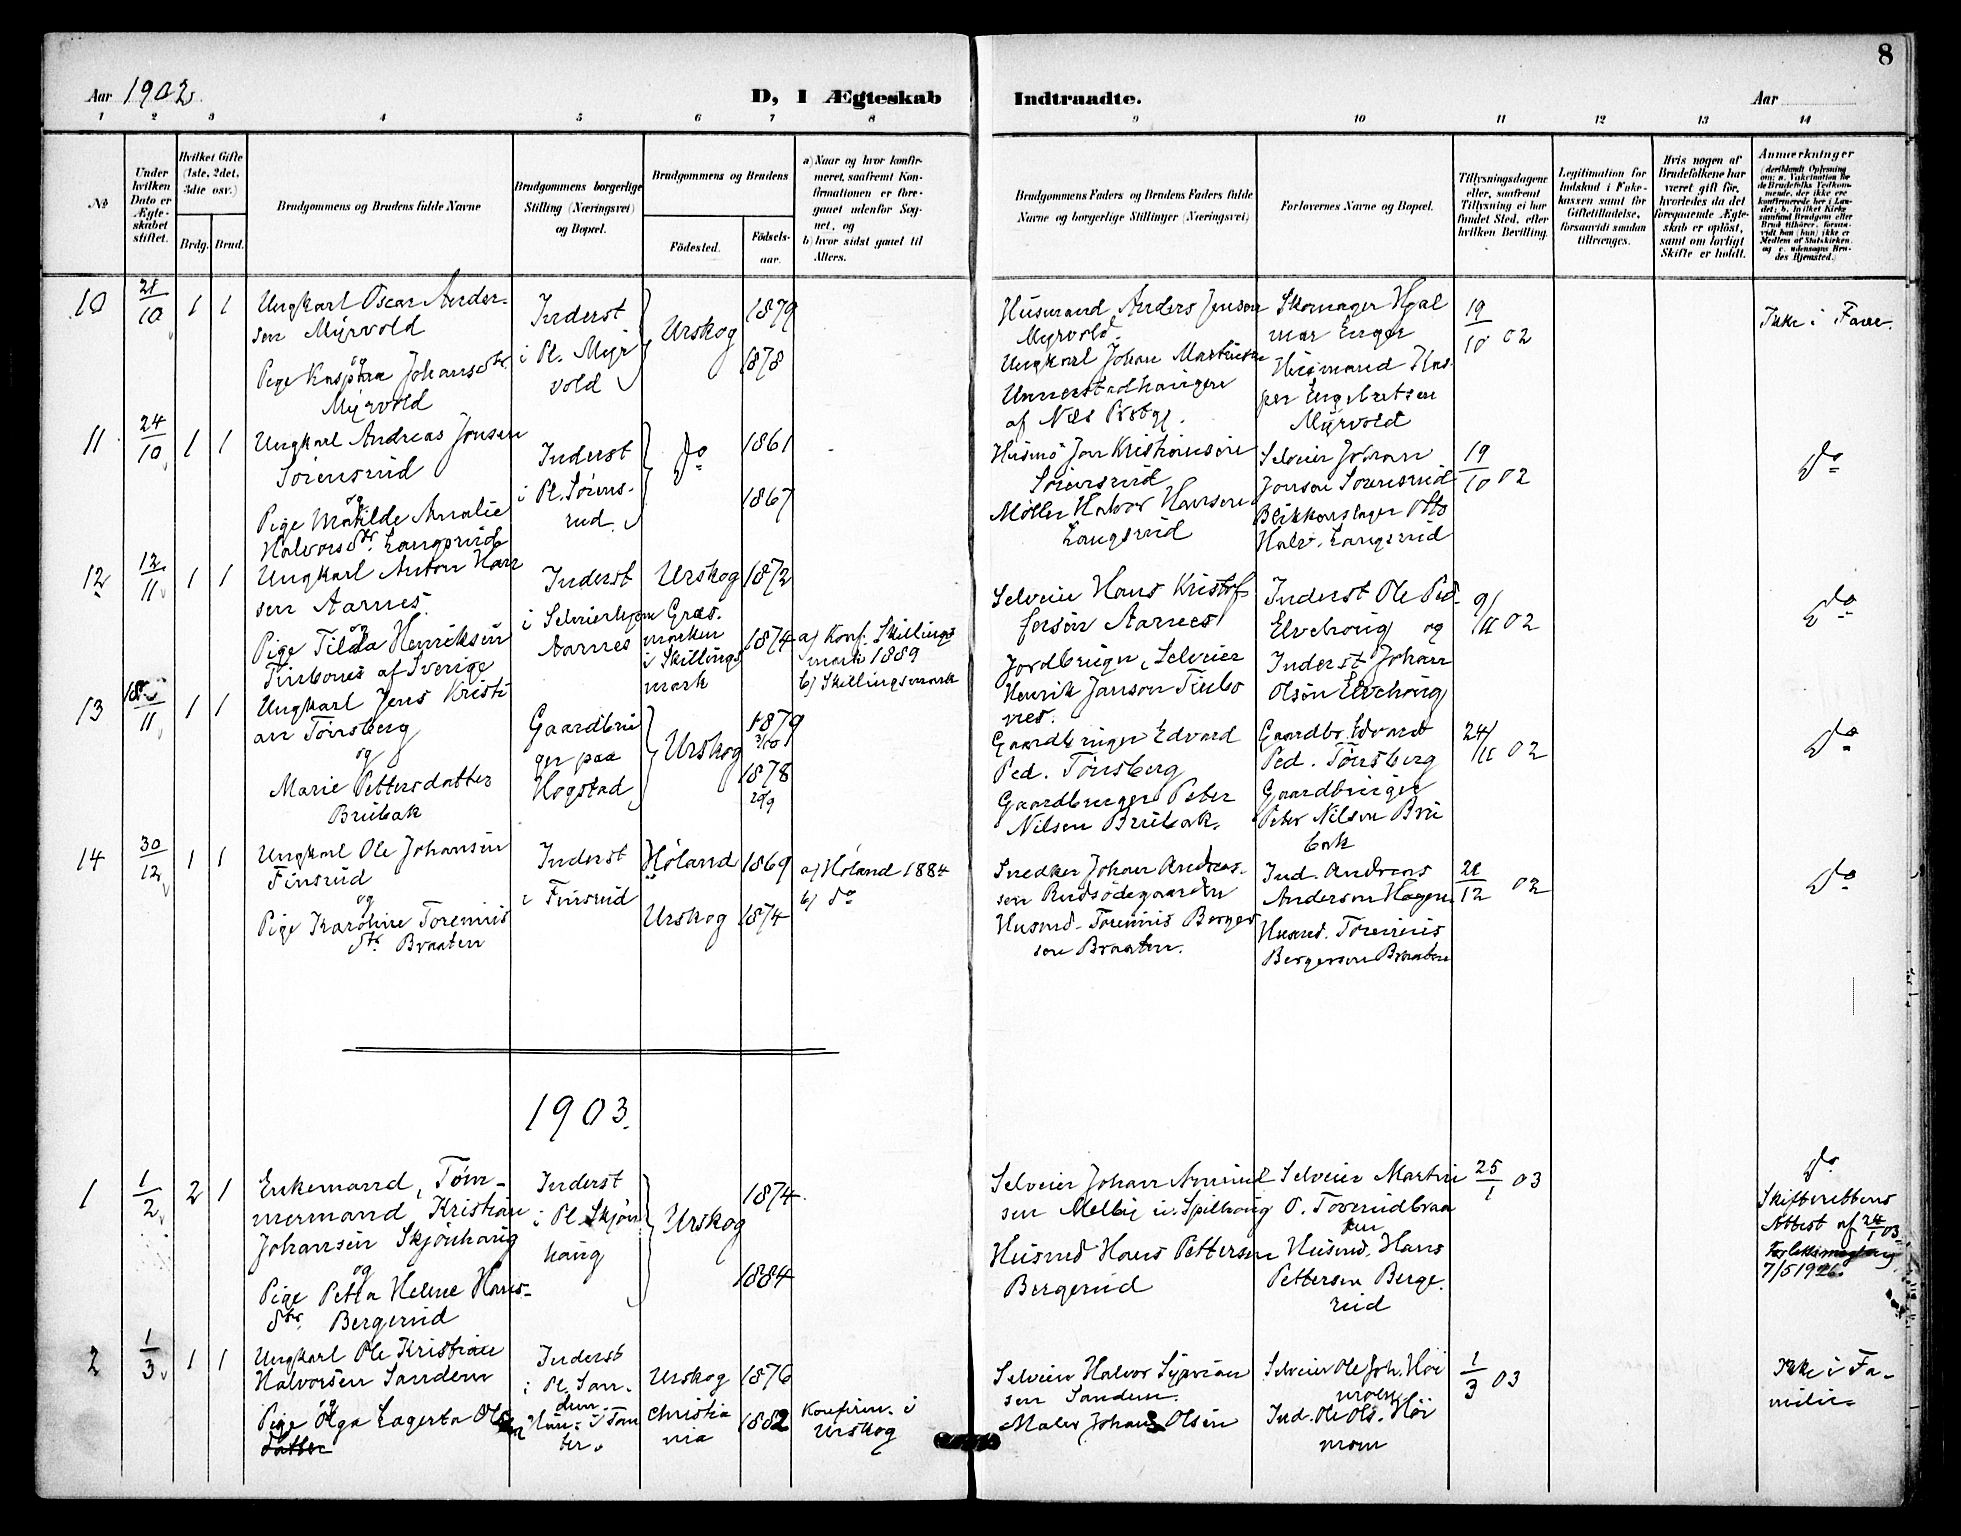 8
Aar 1902.
D, I Ægteskab
Indtraadte.
Aar
1 2 3 4 5 6 7 8
9 10 11 12 13 14
№
Under hvilken Dato er Ægteskabet stiftet.
Hvilket Gifte (1ste, 2det, 3die osv.)
Brdg. Brud.
Brudgommens og Brudens fulde Navne
Brudgommens borgerlige Stilling (Næringsvei) og Bopæl.
Brudgommens og Brudens
Födested.
Födsels-aar.
a) Naar og hvor konfirmeret, saafremt Konfirmationen er foregaaet udenfor Sognet, og
b) hvor sidst gaaet til Alters.
Brudgommens Faders og Brudens Faders fulde Navne og borgerlige Stillinger (Næringsvei)
Forlovernes Navne og Bopæl.
Tillysningsdagene eller, saafremt Tillysning ei har fundet Sted, efter hvilken Bevilling.
Legitimation for Indskud i Enkekassen samt for Giftetilladelse, forsaavidt saadan tiltrænges.
Hvis nogen af Brudefolkene har været gift för, hvorledes da det foregaaende Ægteskab er oplöst, samt om lovligt Skifte er holdt.
Anmærkninger
10
21/10
1 1
Ungkarl Oscar Ander-
sen Myrvold
og
Pige Kaspara Johansdtr.
Myrvold
Inderst
i Pl. Myr
vold
Urskog
1879
1878
Husmand Anders Jensen
Myrvold.
Ungkarl Johan Martinsen
Unnerstadhaugen
af Næs Prstgj.
Skomager Hjal
mar Enger
Husmand Kas
per Engebretsen
Myrvold
19/10 02
Ikke i Fam.
11
24/10
1 1
Ungkarl Andreas Jonsen
Sörensrud
og
Pige Matilde Amalie
Halvorsdtr. Langsrud
Inderst
i Pl. Sörens-
rud.
Do
1861
1867
Husmd Jon Kristiansen
Sörensrud
Møller Halvor Hansen
Langsrud
Selveier Johan
Jonsen Sorensrud
Blikkenslager Otto
Halv. Langsrud
19/10 02
Do
12
12/11
1 1
Ungkarl Anton Han
sen Aarnes.
og
Pige Tilda Henriksen
Finbones af Sverige
Inderst
i Selveierhjem
Aarnes
Urskog
Græs
marken
i Skillings
mark
1872
1874
a) Konf. Skillings
mark 1889
b) Skillingsmark
Selveier Hans Kristof
fersön Aarnes
Jordbruger, Selveier
Henrik Janson Finbo
nes.
Inderst Ole Ped.
Elvehoug og
Inderst Johan
Olsön Elvehoug
9/11 02
Do
13
18/11
1 1
Ungkarl Jens Kristi
an Tönsberg
og
Marie Pettersdatter
Brubak
Gaardbru
ger paa
Hogstad
Urskog
1879
3/10
1878
20/9
Gaardbruger Edvard
Ped. Tönsberg
Gaardbruger Peter
Nilsen Brubak.
Gaardbr. Edvard
Ped. Tönsberg
Gaardbruger
Peter Nilsen Bru
bak
24/11 02
Do
14
30/12
1 1
Ungkarl Ole Johansen
Finsrud
og
Pige Karoline Torennis
dtr. Braaten
Inderst
i Finsrud
Høland
Urskog
1869
1874
a) Høland 1884
b) do
Snedker Johan Andreas-
sen Rudsödegaarden
Husmd. Torennis Berger
sen Braaten.
Ind. Andreas
Anderson Hagen
Husmd. Torennis
Bergerson Braaten
21/12 02
Do
1903.
1
1/2
2 1
Enkemand, Töm-
mermand, Kristian
Johansen Skjönhaug
og
Pige Petra Helene Hans-
dtr. Bergerud
Inderst
i Pl. Skjön
haug
Urskog
1874
1884
Selveier Johan Amund
sen Melby u. Spilhaug
Husmd Hans Pettersen
Bergerud
Selveier Martin
O. Toverudbraa
ten
Husmd. Hans
Pettersen Berge
rud
25/1 03
Do
Skifterettens
Attest af 24/1 03.
7/5 1926.
2
1/3
1 1
Ungkarl Ole Kristian
Halvorsen Sanden
og
Pige Olga Lagerta Olsen
datter
Inderst
i Pl. San-
den.
Hun: i Tom
ter.
Urskog
Christia
nia
1876
1882
Konfirm. i
Urskog
Selveier Halvor Syversen
sen Sanden.
Maler Johans Olsen
Selveier Ole Joh. Høi
moen.
Ind. Ole Ols. Høi
moen
1/3 03
Ikke i Fa-
milie